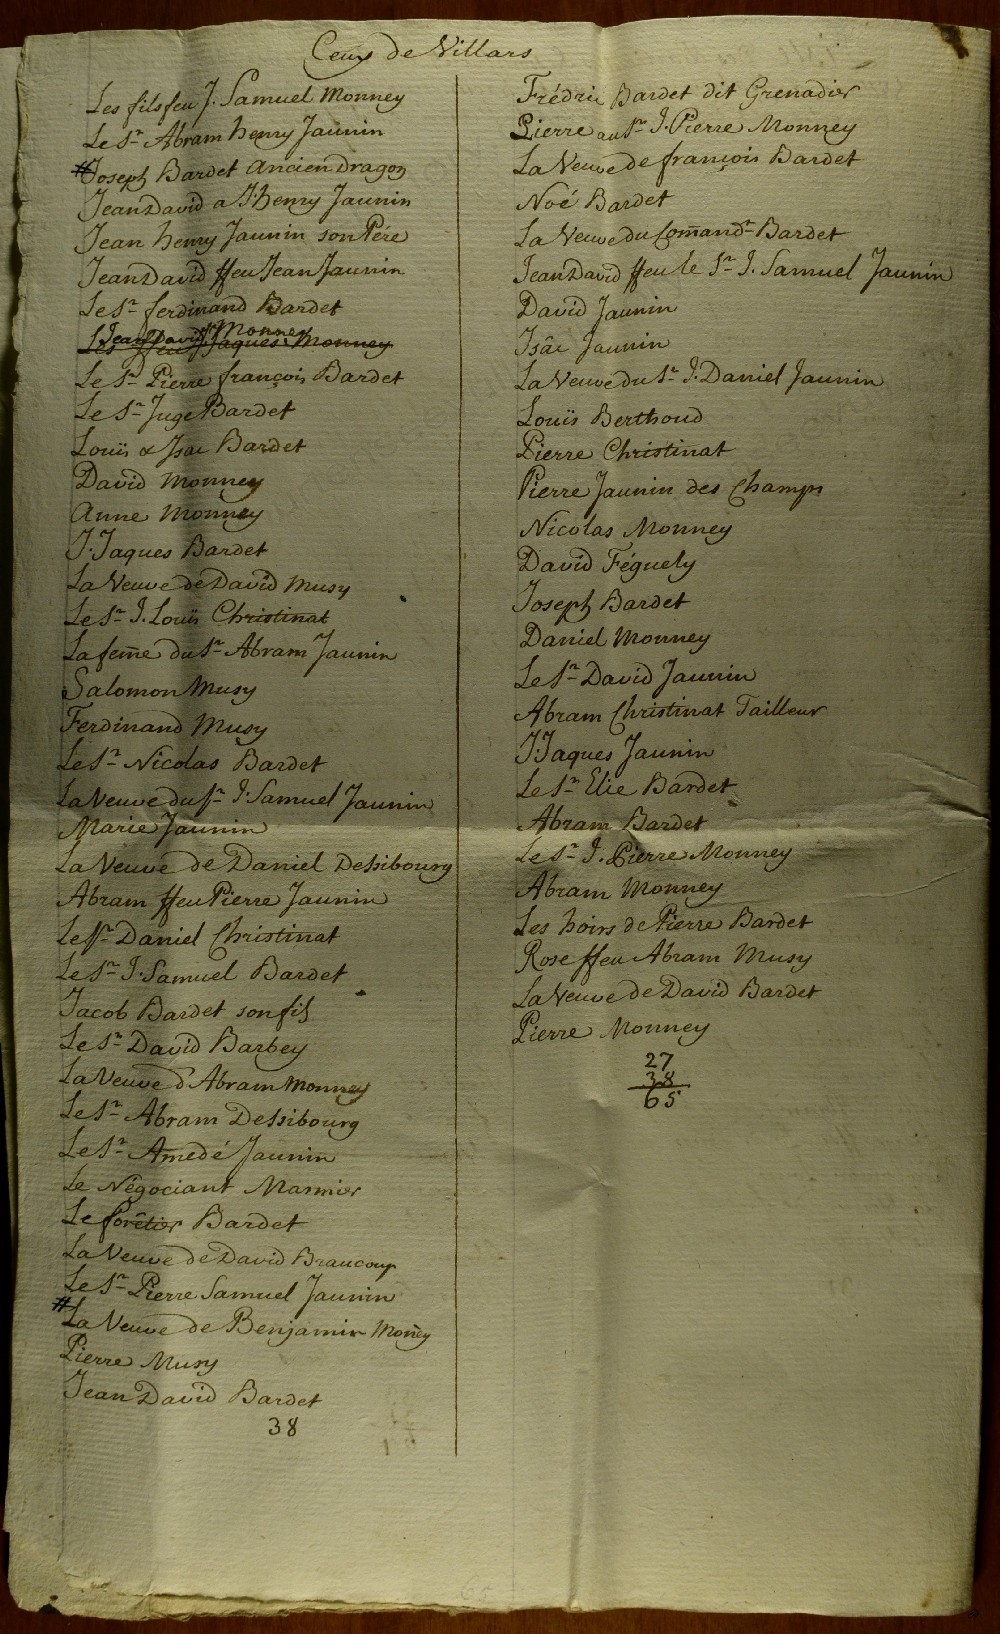 Ceux de Villars
Les fils feu J. Samuel Monney
Le Sr. Abram henry Jaunin
# Joseph Bardet Ancien Dragon
Jean David a J. henry Jaunin
Jean henry Jaunin son Pére
Jean David ffeu Jean Jaunin
Le Sr. ferdinand Bardet
Jean David Monney
Les ffeu J Jaques Monney
Le Sr. Pierre françois Bardet
Le Sr. Juge Bardet
Louïs & Isac Bardet
David Monney
Anne Monney
J. Jaques Bardet
La Veuve de David Musy
Le Sr. J. Louïs Christinat
La fem̃e du Sr. Abram Jaunin
Salomon Musy
Ferdinand Musy
Le Sr. Nicolas Bardet
La Veuve du Sr. J. Samuel Jaunin
Marie Jaunin
La Veuve de Daniel Dessibourg
Abram ffeu Pierre Jaunin
Le Sr. Daniel Christinat
Le Sr. J. Samuel Bardet
Jacob Bardet son fils
Le Sr. David Barbey
La Veuve d'Abram Monney
Le Sr. Abram Dessibourg
Le Sr. Amedé Jaunin
Le Négociant Marmier
Le forêtier Bardet
La Veuve de David Braucoup
Le Sr. Pierre Samuel Jaunin
# La Veuve de Benjamin Mon̄ey
Pierre Musy
Jean David Bardet
38
Frédric Bardet dit Grenadier
Pierre au Sr. J. Pierre Monney
La Veuve de françois Bardet
Noé Bardet
La Veuve du Com̄andr. Bardet
Jean David ffeu le Sr. J. Samuel Jaunin
David Jaunin
Isâc Jaunin
La Veuve du Sr. J. Daniel Jaunin
Louïs Berthoud
Pierre Christinat
Pierre Jaunin des Champs
Nicolas Monney
David Féguely
Joseph Bardet
Daniel Monney
Le Sr. David Jaunin
Abram Christinat Tailleur
J. Jaques Jaunin
Le Sr. Elie Bardet
Abram Bardet
Le Sr. J. Pierre Monney
Abram Monney
Les hoirs de Pierre Bardet
Rose ffeu Abram Musy
La Veuve de David Bardet
Pierre Monney
27
38
65